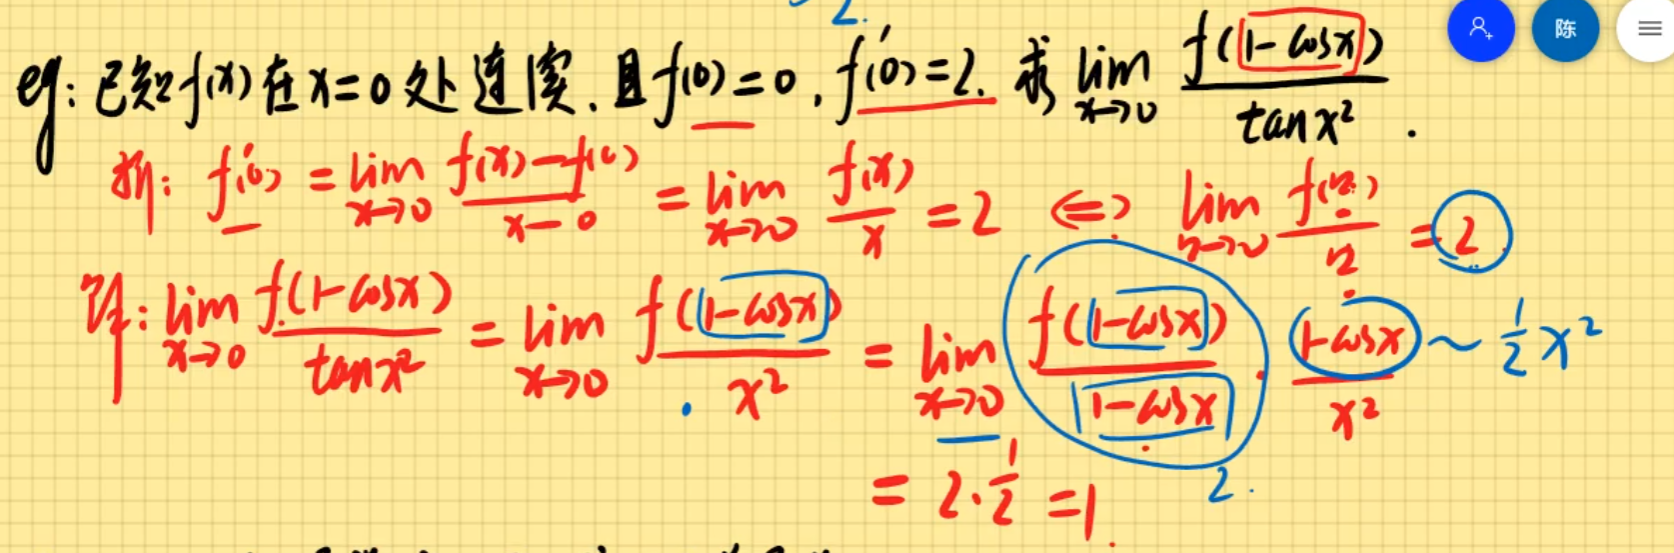 2.
陈
eg: 已知f(x)在x=0处连续,且f(0)=0,f'(0)=2. 求 lim x→0 f(1-cosx)/tanx².
析: f'(0) = lim x→0 (f(x)-f(0))/(x-0) = lim x→0 f(x)/x = 2 ⇔ lim →0 f( )/ = 2
解: lim x→0 f(1-cosx)/tanx² = lim x→0 f(1-cosx)/x² = lim x→0 f(1-cosx)/(1-cosx) · (1-cosx)/x² 1-cosx ~ 1/2 x²
2.
= 2·1/2 = 1.